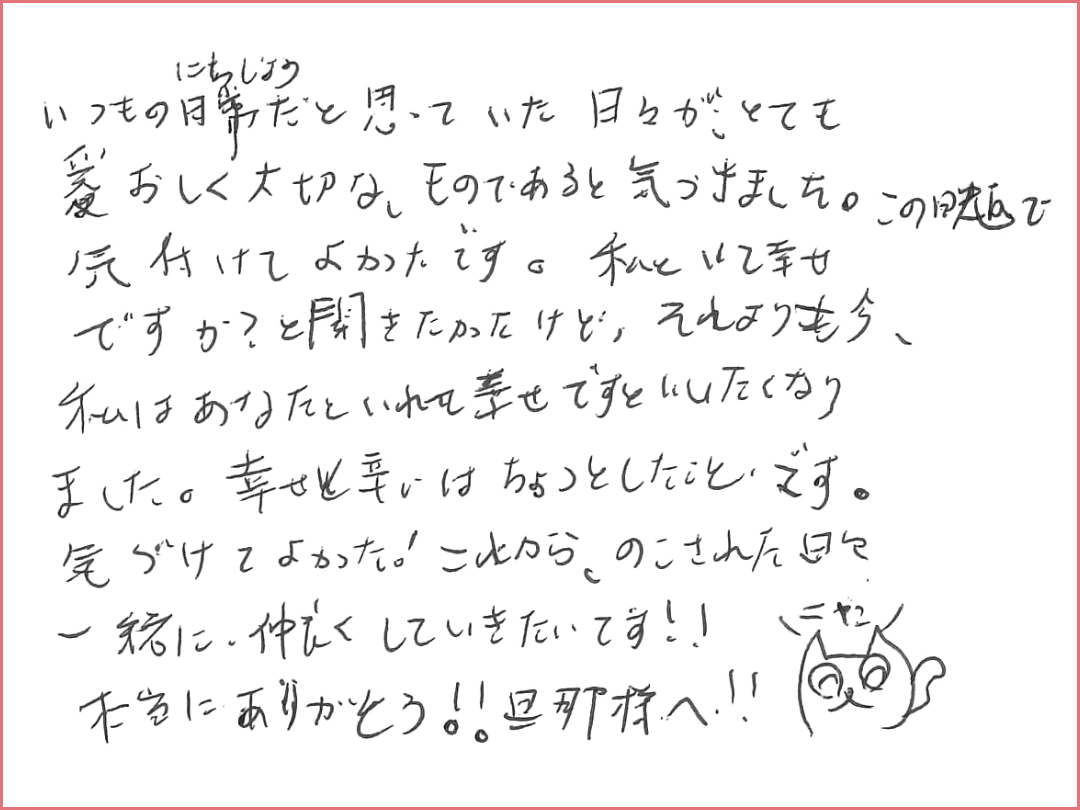 にちじょう
いつもの日常だと思っていた日々がとても
愛おしく大切なものであると気づきました。この映画で
気付けてよかったです。私といて幸せ
ですか?と聞きたかったけど、それよりも今、
私はあなたといれて幸せですといいたくなり
ました。幸せと辛いはちょっとしたことです。
気づけてよかった!これから、のこされた日々
一緒に、仲良くしていきたいです!!
本当にありがとう!!旦那様へ!!
ニャン